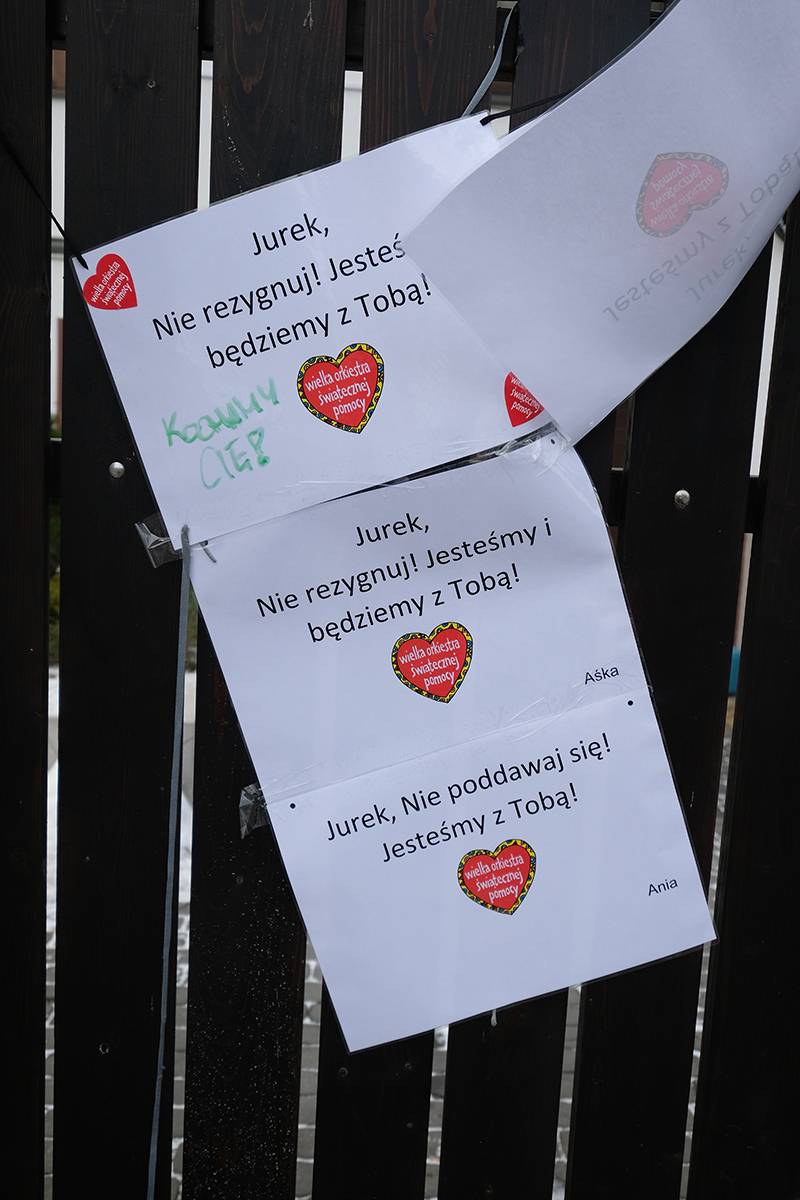 Jurek,
Nie rezygnuj! Jesteś
będziemy z Tobą!
wielka orkiestra
świątecznej
pomocy
wielka orkiestra
świątecznej
pomocy
KOCHAMY
CIĘ!
świątecznej
pomocy
Jurek,
Nie rezygnuj! Jesteśmy i
będziemy z Tobą!
wielka orkiestra
świątecznej
pomocy
Aśka
Jurek, Nie poddawaj się!
Jesteśmy z Tobą!
wielka orkiestra
świątecznej
pomocy
Ania
Jurek,
Jesteśmy z Tobą!
wielka orkiestra
świątecznej
pomocy